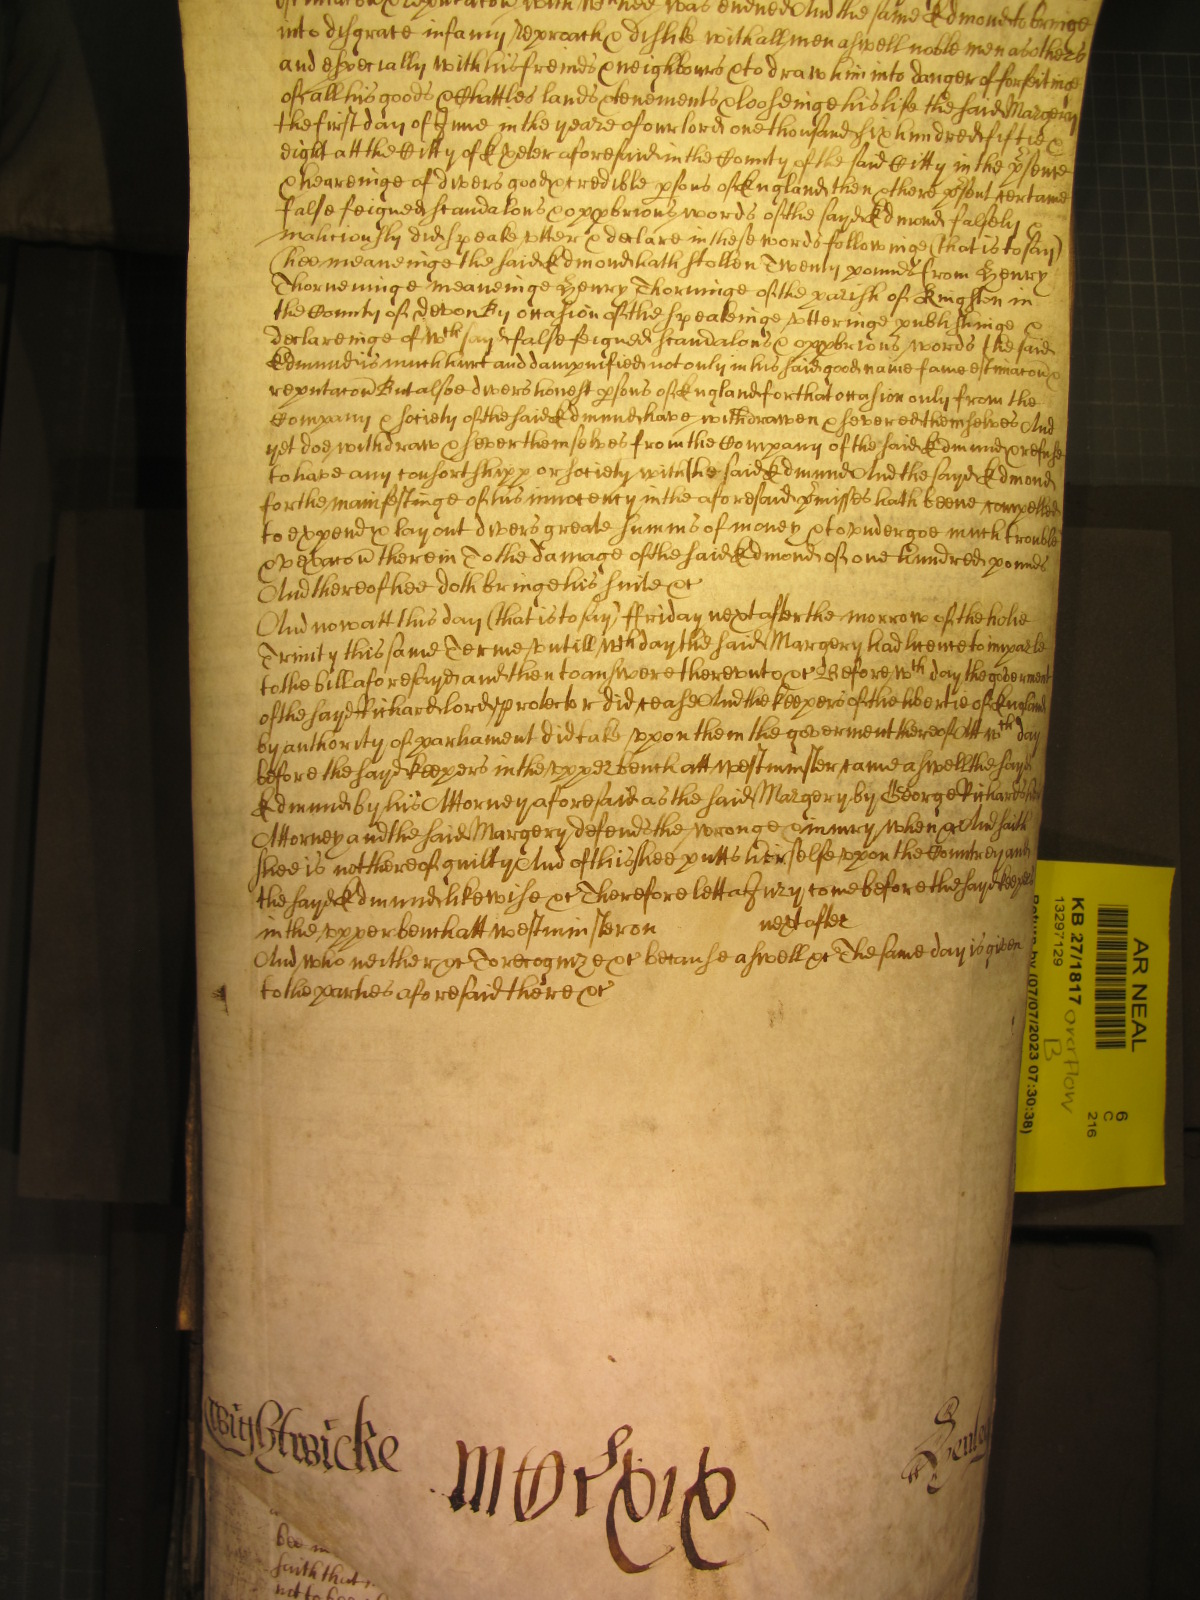 estimacon & reputacon with wch hee was endued And the same Edmond to bringe
into disgrace infamy reproach & dislike with all men aswell noble men as others
and especially with his freinds & neighbours & to draw him into danger of forfeitinge
of all his goods & Chattles lands & tenements & looseinge his life the said Margery
the first day of June in the yeare of our lord one thousand six hundred fiftie &
eight att the Citty of Exeter aforesaid in the County of the said Citty in the psence
& heareinge of divers good & credible psons of England then & there psent certaine
false feigned scandalous & opprbrious words of the sayd Edmond falsely &
maliciously did speake vtter & declare in these words followinge (that is to say)
hee meaneinge the said Edmond hath stollen Twenty pounds from Henry
Thorneinge meaneinge Henry Thorninge of the parish of Kingston in
the County of devon By occasion of the speakeinge vtteringe publishinge &
declareinge of wch sayd false feigned scandalous & opprbrious words the said
Edmund is much hurt and dampnified not only in his said good name fame estimacon &
reputacon But alsoe divers honest psons of England for that occasion only from the
Company & society of the said Edmund have withdrawen & severed themselves And
yet doe withdraw & sever themselves from the Company of the said Edmund & refuse
to have any consortshipp or society with the said Edmund And the sayd Edmond
for the manifestinge of his innocency in the aforesaid pmisses hath beene compelled
to expend & lay out divers greate summs of money & to vndergoe much trouble
& vexacon therein To the damage of the said Edmond of one hundred pounds
And thereof hee doth bringe his suite &c
And now att this day (that is to say) ffriday next after the morrow of the holie
Trinity this same Terme vntill wch day the said Margery had licence to imparle
to the bill aforesayd and then to answere therevnto &c Before wch day the goverment
of the sayd Richard lord protector did cease And the keepers of the libertie of England
by authority of parliament did take vpon them the goverment thereof Att wch day
before the sayd keepers in the vpper bench att westminster came aswell the sayd
Edmund by his Attorney aforesaid as the said Margery by George Richards her
Attorney and the said Margery defends the wronge & iniury when &c And saith
shee is not thereof guilty And of this shee putts her selfe vpon the Countrey and
the sayd Edmund likewise &c Therefore lett a Jury come before the sayd keepers
in the vpper bench att westminster on next after
And who neither &c To recognize &c because aswell &c The same day is given
to the parties aforesaid there &c
Wightwicke
Henley
bee in
saith that
not to bee
AR NEAL
6
C
216
KB 27/1817 overflow
B
13297129
Return by (07/07/2023 07:30:38)